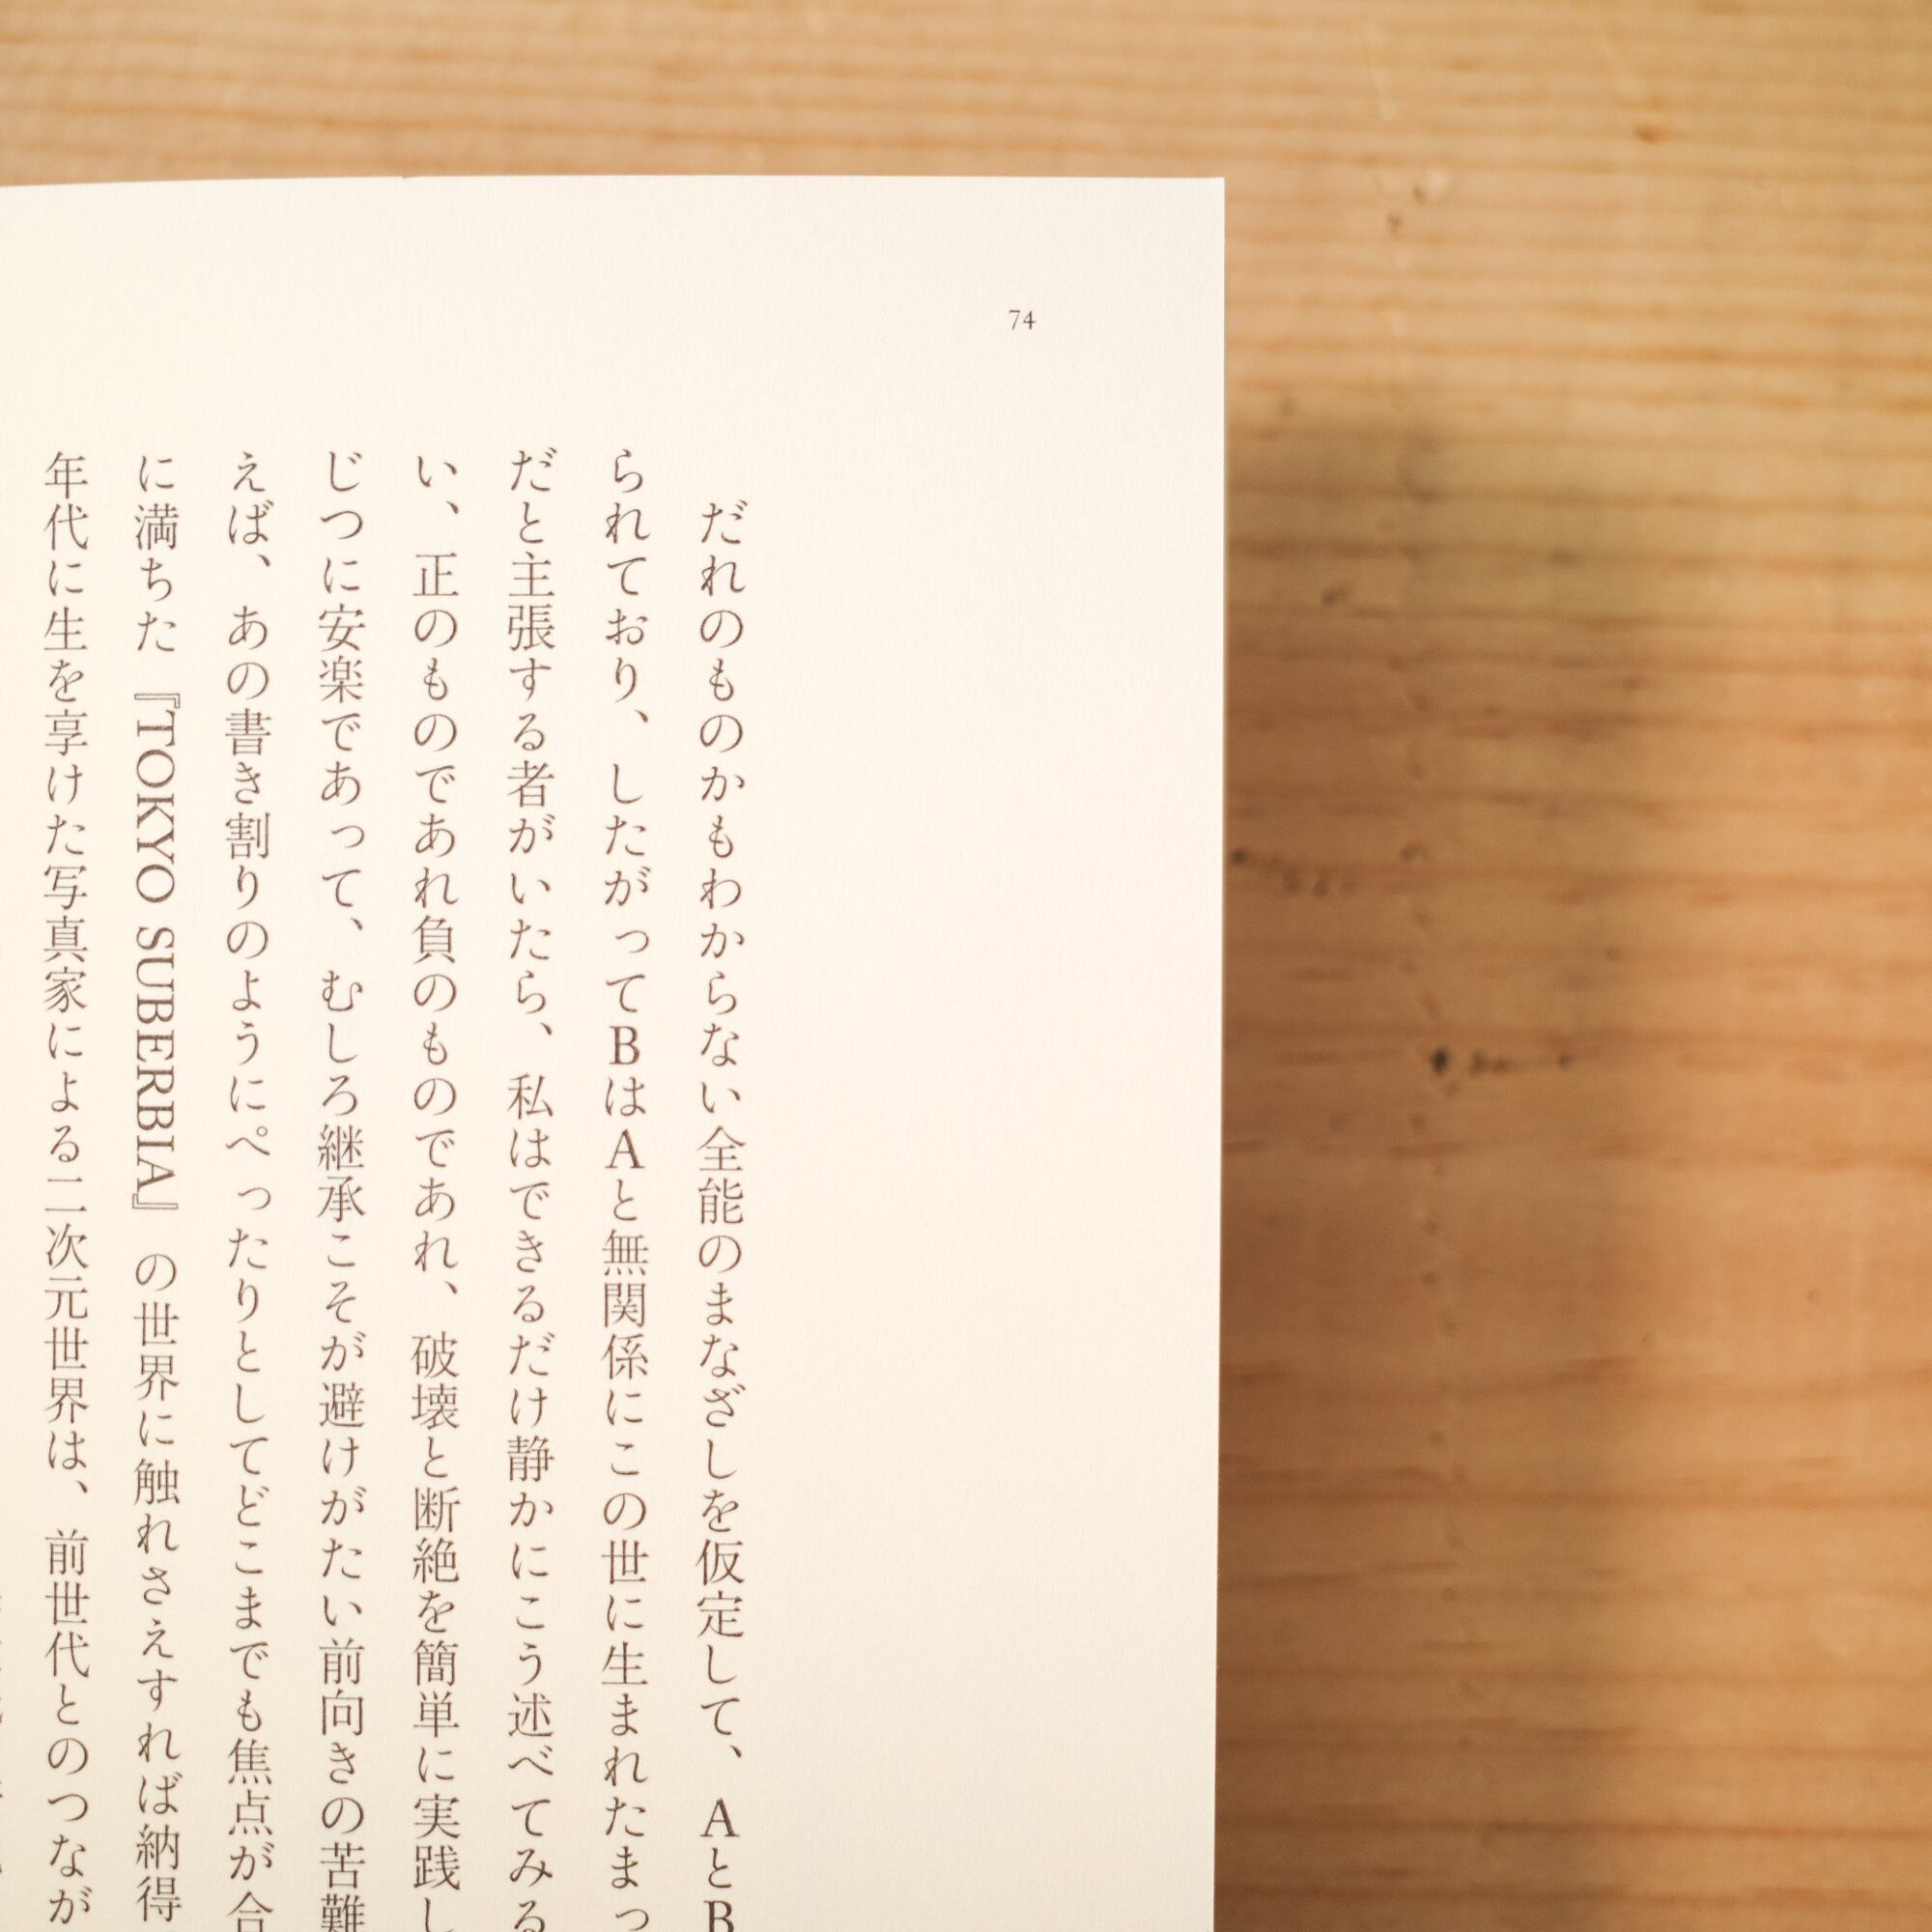 74
だれのものかもわからない全能のまなざしを仮定して、AとB
られており、したがってBはAと無関係にこの世に生まれたまっ
だと主張する者がいたら、私はできるだけ静かにこう述べてみる
い、正のものであれ負のものであれ、破壊と断絶を簡単に実践し
じつに安楽であって、むしろ継承こそが避けがたい前向きの苦難
えば、あの書き割りのようにぺったりとしてどこまでも焦点が合
に満ちた『TOKYO SUBERBIA』の世界に触れさえすれば納得
年代に生を享けた写真家による二次元世界は、前世代とのつなが